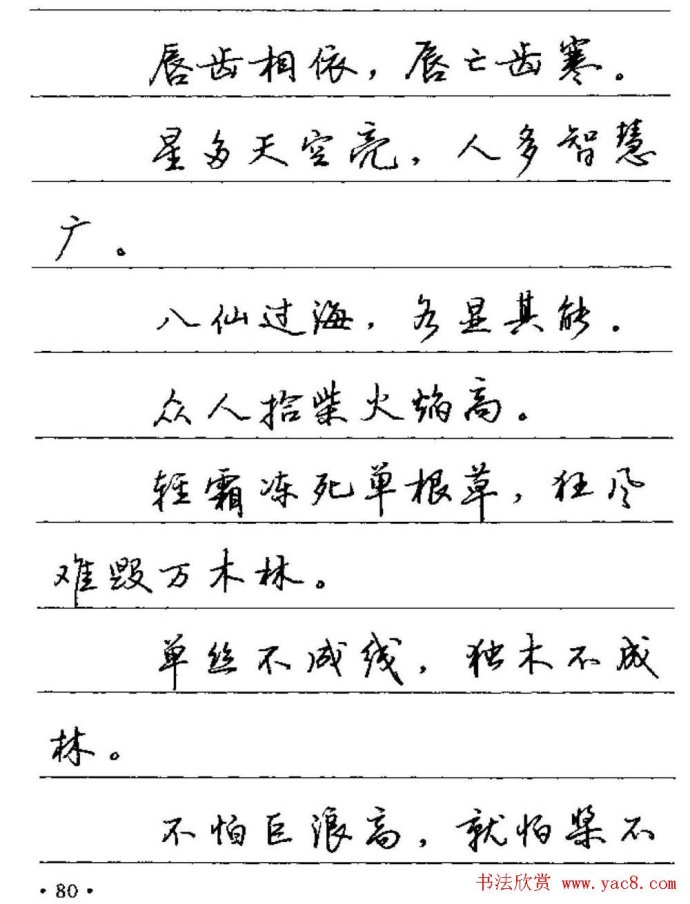 唇齿相依，唇亡齿寒。
星多天空亮，人多智慧
广。
八仙过海，各显其能．
众人拾柴火焰高。
轻霜冻死单根草，狂风
难毁万木林。
单丝不成线，独木不成
林。
不怕巨浪高，就怕桨不
·80·
书法欣赏 www.yac8.com